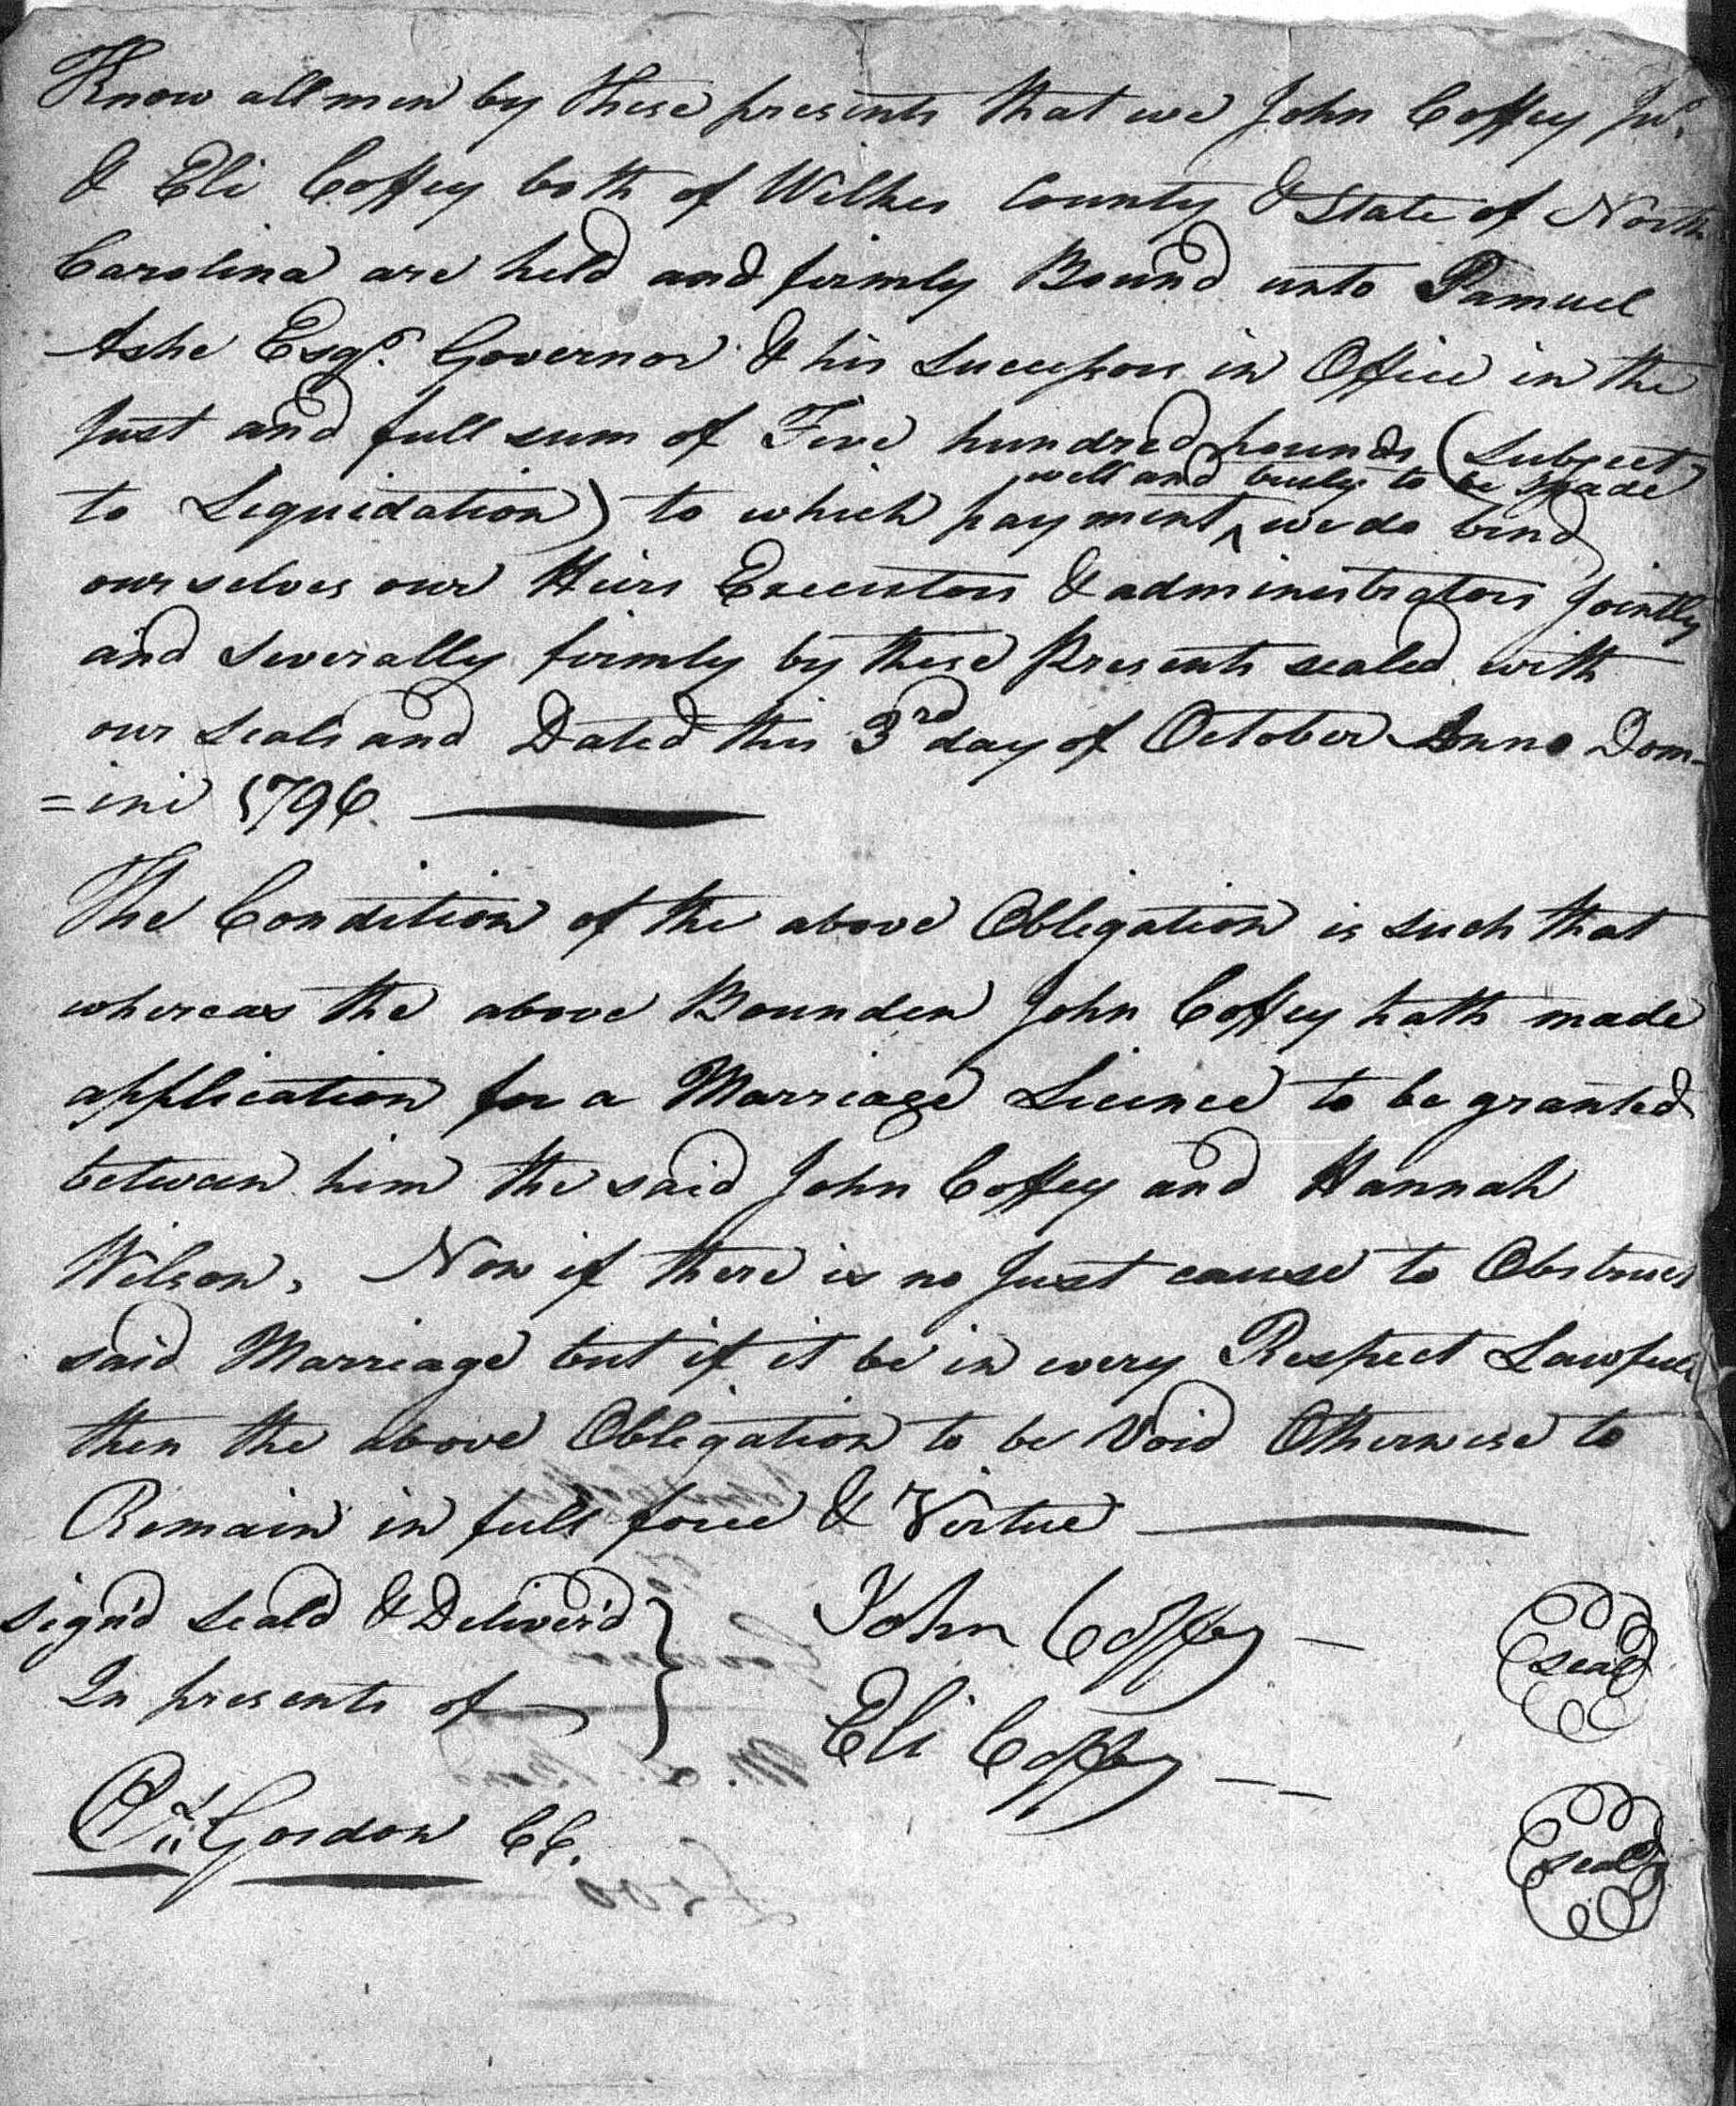 Know all men by these presents that we John Coffey Jur.
& Eli Coffey both of Wilkes County & State of North
Carolina are held and firmly Bound unto Samuel
Ashe Esqr. Governor & his Successors in Office in the
Just and full sum of Five hundred pounds (Subject
well and truly to be Made
to Liquidation) to which payment ^ we do bind
ourselves our Heirs Executors & administrators Jointly
and severally firmly by these Presents sealed with
our seals and Dated this 3rd day of October Anno Dom-
=ini 1796.
The Condition of the above Obligation is such that
whereas the above Bounden John Coffey hath made
application for a Marriage Licence to be granted
between him the said John Coffey and Hannah
Wilson, Now if there is no Just cause to Obstruct
said Marriage but if it be in every Respect Lawfull
then the above Obligation to be Void Otherwise to
Remain in full force & Virtue
sign'd seald & Deliver'd } John Coffey — seal
In presents of
Eli Coffey — — seal
Gordon CC.